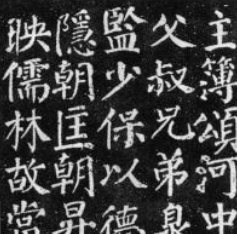 主簿頌河中
父叔兄弟
監少保以德
隱朝匡朝昇
映儒林故當